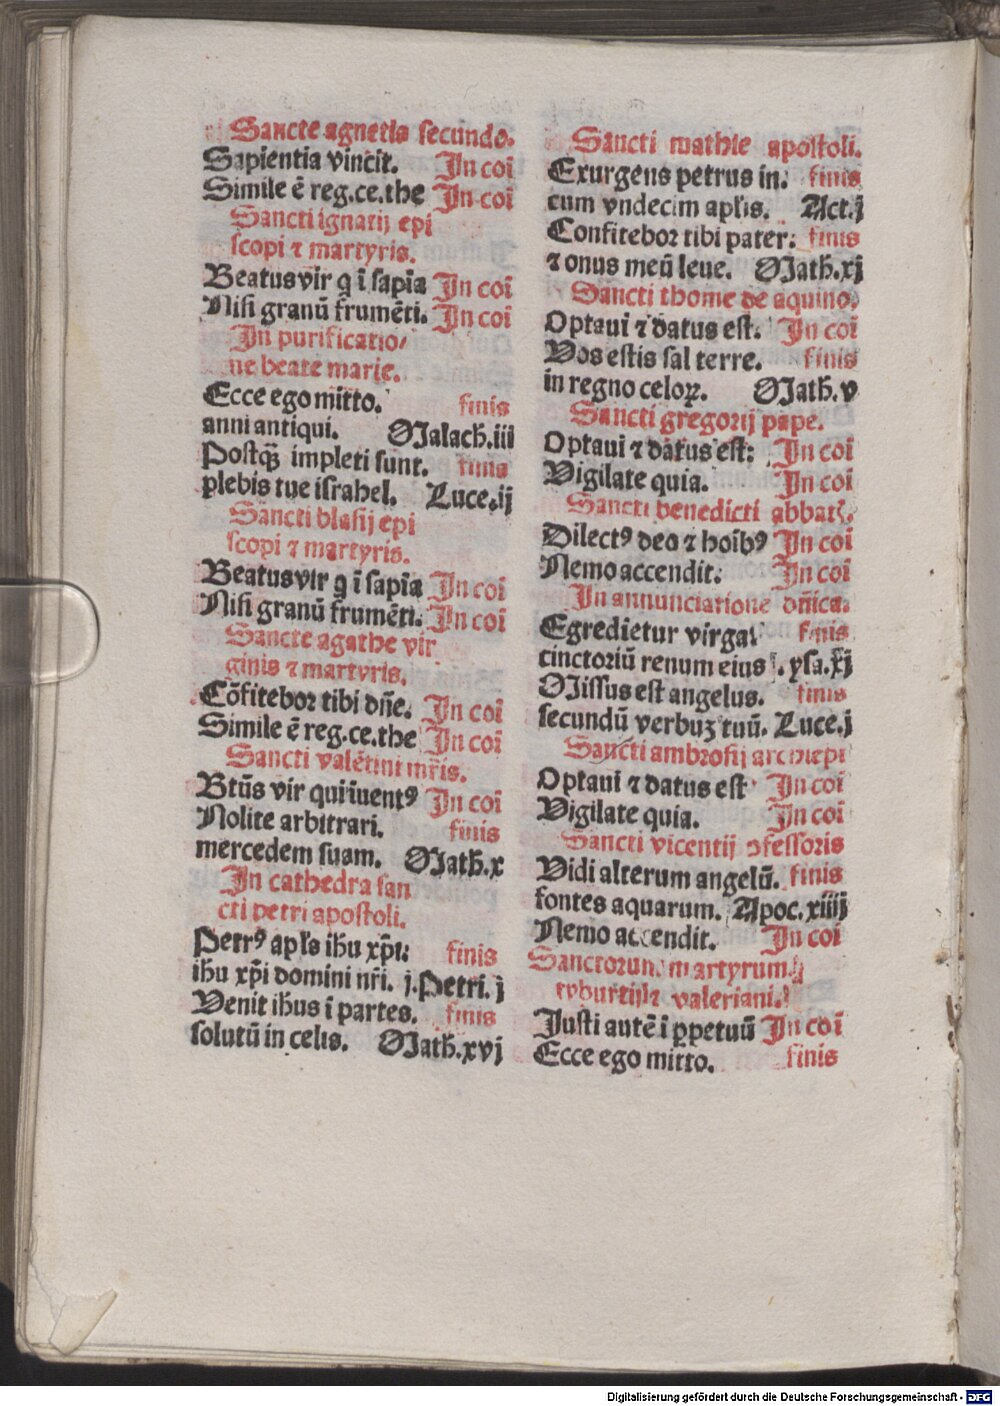 Sancte agnetis secundo.
Sapientia vincit. In coī
Simile ē reg.ce.the In coī
Sancti ignatij epi
scopi ⁊ martyris.
Beatus vir q ī sapīa In coī
Nisi granū frumēti. In coī
In purificatio/
ne beate marie.
Ecce ego mitto. finis
anni antiqui. Malach.iii
Postq̄ impleti sunt. finis
plebis tue israhel. Luce.ij
Sancti blasij epi
scopi ⁊ martyris.
Beatus vir q ī sapīa In coī
Nisi granū frumēti. In coī
Sancte agathe vir
ginis ⁊ martyris.
Cōfitebor tibi dñe. In coī
Simile ē reg.ce.the In coī
Sancti valētini mr̄is.
Btūs vir qui īuentꝰ In coī
Nolite arbitrari. finis
mercedem suam. Math.x
In cathedra san
cti petri apostoli.
Petrꝰ apl̄s ihu xp̄i: finis
ihu xp̄i domini nr̄i. j.Petri.j
Venit ihus ī partes. finis
solutū in celis. Math.xvj
Sancti mathie apostoli.
Exurgens petrus in. finis
cum vndecim apl̄is. Act.j
Confitebor tibi pater: finis
⁊ onus meū leue. Math.xj
Sancti thome de aquino.
Optaui ⁊ datus est. In coī
Vos estis sal terre. finis
in regno celoꝝ. Math.v
Sancti gregorij pape.
Optaui ⁊ datus est: In coī
Vigilate quia. In coī
Sancti benedicti abbat.
Dilectꝰ deo ⁊ hoībꝰ In coī
Nemo accendit. In coī
In annunciatione dñica.
Egredietur virga. finis
cinctoriū renum eius. ysa.xj
Missus est angelus. finis
secundū verbuꝫ tuū. Luce.j
Sancti ambrosij archiepi
Optaui ⁊ datus est In coī
Vigilate quia. In coī
Sancti vicentij ꝯfessoris
Vidi alterum angelū. finis
fontes aquarum. Apoc.xiiij
Nemo accendit. In coī
Sanctorum martyrum
tyburtij ⁊ valeriani.
Justi autē ī ꝑpetuū In coī
Ecce ego mitto. finis
Digitalisierung gefördert durch die Deutsche Forschungsgemeinschaft - DFG